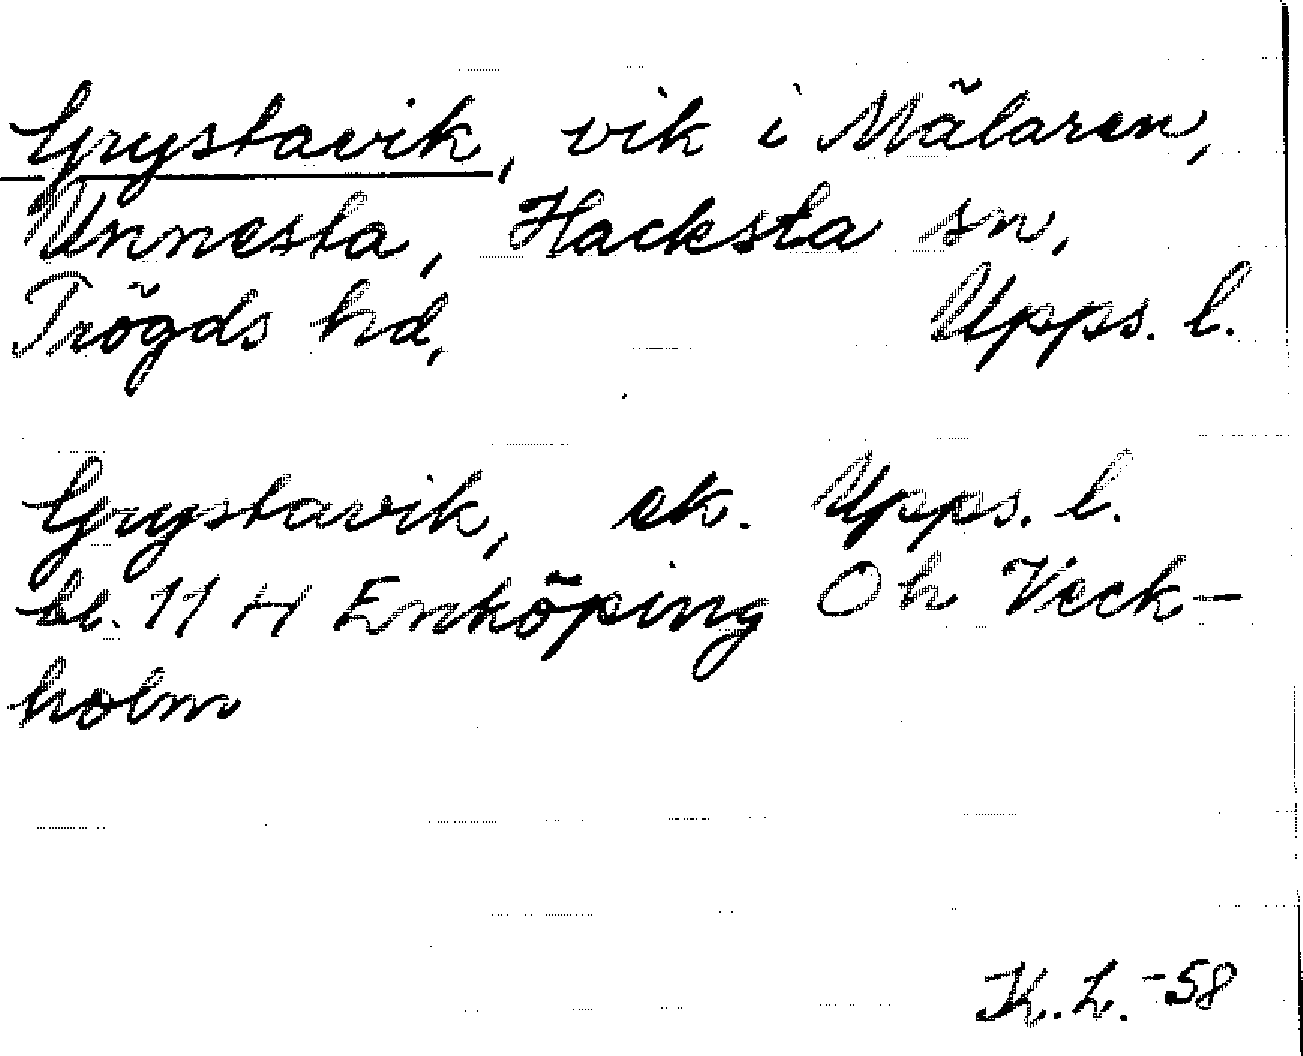 Grystavik, vik i Mälaren,
Unnesta, Hacksta sn,
Trögds hd, Upps. l.
Grystavik, ek. Upps. l.
bl. 11 H Enköping Oh Veck-
holm
K. L. -58